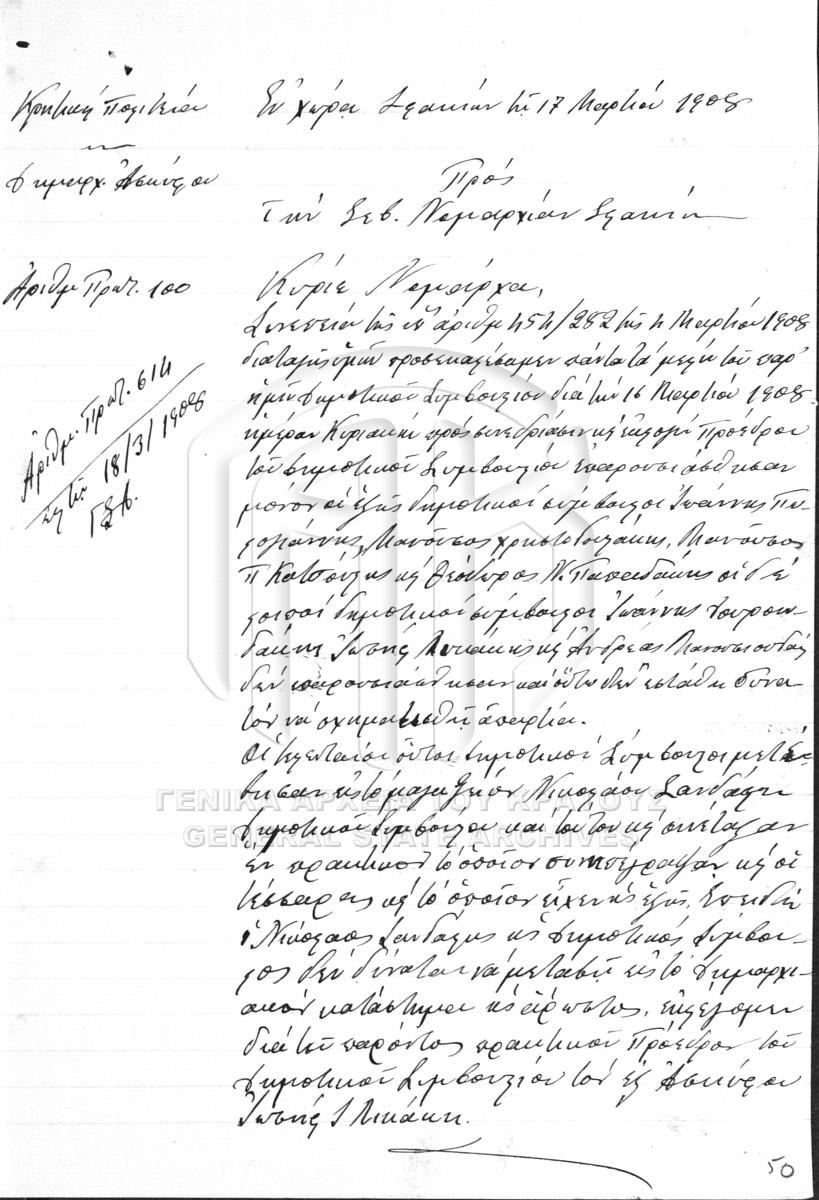 Κρητική Πολιτεία
Δημαρχ. Ἀσκύφου
Ἀριθμ Πρωτ. 100
Ἀριθμ. Πρωτ. 614
18/3/1908
Ἐν χώρᾳ Σφακίων τῇ 17 Μαρτίου 1908
Πρὸς
Τὴν Σεβ. Νομαρχίαν Σφακίων
Κύριε Νομάρχα,
Συνεπείᾳ τῆς ὑπ' ἀριθμ 454/282 τῆς 4 Μαρτίου 1908
διαταγῆς ὑμῶν προσεκαλέσαμεν πάντα τὰ μέλη τοῦ παρ'
ἡμῖν Δημοτικοῦ Συμβουλίου διὰ τὴν 16 Μαρτίου 1908
ἡμέραν Κυριακὴν πρὸς συνεδρίασιν κ ἐκλογὴν Προέδρου
τοῦ Δημοτικοῦ Συμβουλίου ἐπαρουσιάσθησαν
μόνον οἱ ἑξῆς δημοτικοὶ σύμβουλοι Ἰωάννης Πω-
λογιάννης, Μανοῦσος Χριστοδουλάκης, Μανοῦσος
Π Κατσούλης κ Θεόδωρος Ν. Παπαδάκης οἱ δὲ
λοιποὶ δημοτικοὶ σύμβουλοι Ἰωάννης
Ἰωσὴφ κ Ἀνδρέας Μανουσουδάκης
δὲν ἐπαρουσιάσθησαν καὶ οὕτω δὲν ἐστάθη δυνα-
τὸν νὰ σχηματισθῇ ἀπαρτία.
Οἱ δημοτικοὶ Σύμβουλοι μετέ-
βησαν εἰς τὸ μαγαζεῖον Νικολάου Σανδάλη
Δημοτικοῦ Συμβούλου καὶ τούτου κ συνέταξαν
ἓν πρακτικὸν τὸ ὁποῖον συνυπέγραψαν κ οἱ
τέσσαρες κ τὸ ὁποῖον εἶχεν ὡς ἑξῆς. Ἐπειδὴ
ὁ Νικόλαος Σανδάλης ὡς Δημοτικὸς Σύμβου-
λος δὲν δύναται νὰ μεταβῇ εἰς τὸ Δημαρχι-
ακὸν κατάστημα ὡς ἄρρωστος, ἐκλέγομεν
διὰ τοῦ παρόντος πρακτικοῦ Πρόεδρον τοῦ
Δημοτικοῦ Συμβουλίου τὸν ἐξ Ἀσκύφου
Ἰωσὴφ Ι Λικάκην.
50
ΓΕΝΙΚΑ ΑΡΧΕΙΑ ΤΟΥ ΚΡΑΤΟΥΣ
GENERAL STATE ARCHIVES